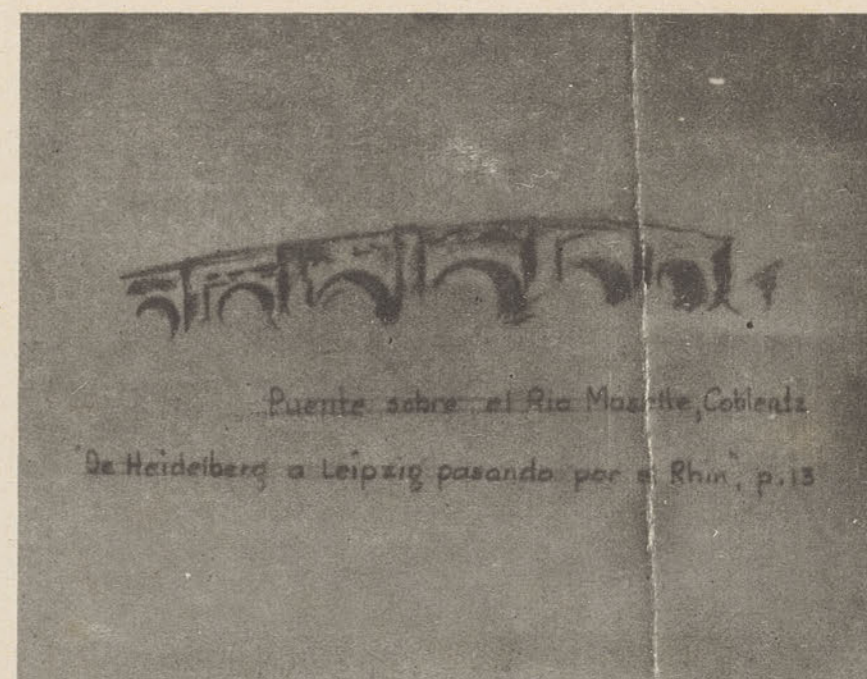 Puente sobre el Rio Moselle, Coblentz
"De Heidelberg a Leipzig pasando por el Rhin", p. 13